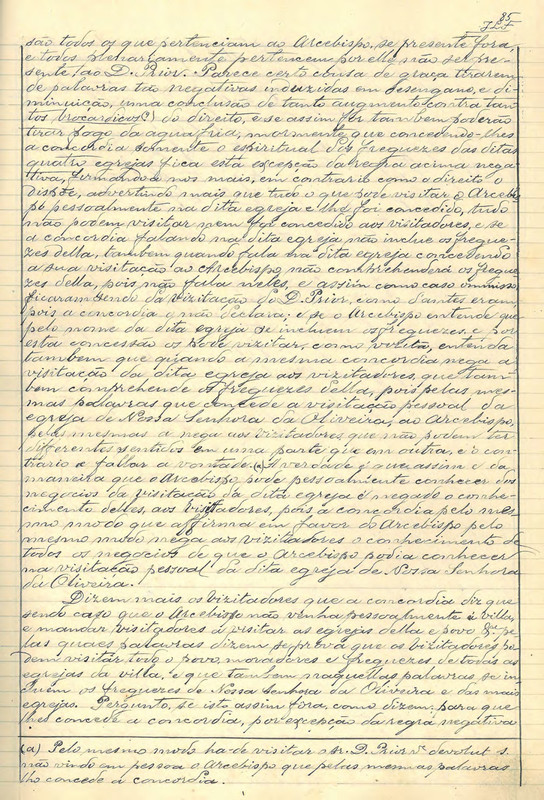 85
são todos os que pertenciam ao Arcebispo, se presente fora,
e todos plenariamente pertencem por elle não ser pre-
sente, ao D. Prior. Parece certo cousa de graça tirarem
de palavras tão negativas induzidas em desengano, e di-
minuição, uma conclusão de tanto augmento contra tan-
tos brocardicos(?) do direito, e se assim for tambem poderão
tirar fogo da agua fria, mormente que concedendo-lhes
a concordia somente o espiritual dos freguezes das ditas
quatro egrejas fica esta excepção da regra acima nega-
tiva, firmando-a nos mais, em contrario como o direito o
dispoe, advertindo mais que tudo o que pode visitar o Arcebis-
po pessoalmente na dita egreja e lhe foi concedido, tudo
não podem visitar nem foi concedido aos visitadores, e se
a concordia falando na dita egreja não inclue os fregue-
zes della, tambem quando fala na dita egreja concedendo
a sua visitação ao Arcebispo não comprehenderá os fregue-
zes della, pois não fala nelles, e assim como caso omisso
ficaram sendo da vizitação do D. Prior, como d'antes eram,
pois a concordia o não declara; e se o Arcebispo entende que
pelo nome da dita egreja se incluem os freguezes, e por
esta concessão os pode vizitar, como vizita, entenda
tambem que quando a mesma concordia nega a
visitação da dita egreja aos vizitadores, que tam-
bem comprehende os freguezes della, pois pelas mes-
mas palavras que concede a visitação pessoal da
egreja de Nossa Senhora da Oliveira, ao Arcebispo,
pelas mesmas a nega aos vizitadores que não podem ter
differentes sentidos em uma parte que em outra, e é con-
trario e faltar a vontade. (a) A verdade é que assim e da
maneira que o Arcebispo pode pessoalmente conhecer dos
negocios da visitação da dita egreja é negado o conhe-
cimento delles, aos visitadores, pois a concordia pelo mes-
mo modo que affirma em favor do Arcebispo pelo
mesmo modo nega aos vizitadores o conhecimento de
todos os negocios de que o Arcebispo podia conhecer
na visitação pessoal da dita egreja de Nossa Senhora
da Oliveira.
Dizem mais os vizitadores que a concordia diz que
sendo caso que o Arcebispo não venha pessoalmente á villa,
e mandar visitadores á visitar as egrejas della e povo &ª pe-
las quaes palavras dizem se prova que os vizitadores po-
dem visitar todo o povo, moradores e freguezes de todas as
egrejas da villa, e que tambem naquellas palavras se in-
cluem os freguezes de Nossa Senhora da Oliveira e das mais
egrejas. Pergunto, se isto assim fora, como dizem, para que
lhes concede a concordia, por excepção da regra negativa
(a) Pelo mesmo modo ha de visitar o Sr. D. Prior devolut s.
não vindo em pessoa o Arcebispo que pelas mesmas palavras
lho concede a concordia.